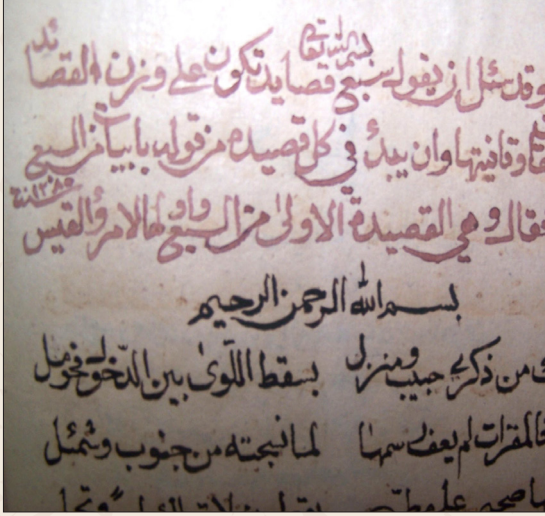 بسم الله تعالى
وقد سئل ان يقول سبع قصايد تكون على وزن القصائد
وقافيتها وان يبدئ في كل قصيده من قوله بابيات من السبع
فقال وهي القصيدة الاولى من السبع واولها لامرؤ القيس
بسم الله الرحمن الرحيم
من ذكرى حبيب ومنزل بسقط اللوى بين الدخول فحومل
فالمقرات لم يعف رسمها لما نسجته من جنوب وشمئل